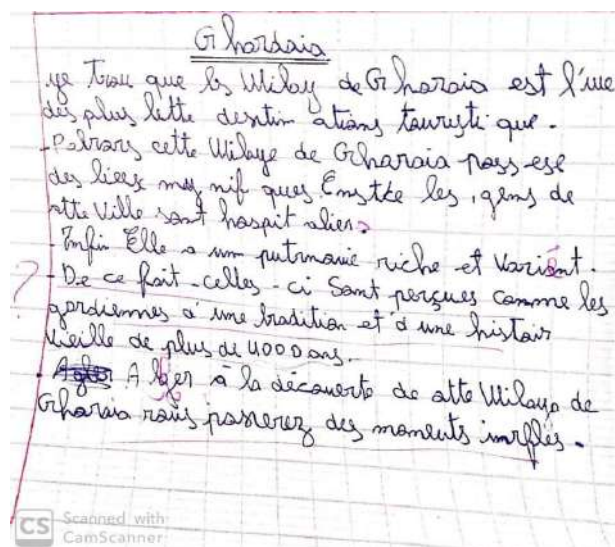 Ghardaia
ye trou que ls Wilay de Gharaia est l'une
des plus lette destin ations touristi que.
- Pabrars cette Wilaye de Gharaia poss-ese
des liees mag nif ques Enstke les, gens de
atte ville sont hospit alier.
- Enfin Elle a un patrmaine riche et Variant.
? - De ce fait - celles - ci Sont perçues comme les
gardiennes d'une tradition et d'une histair
vieille de plus de 4000 ans.
- A ller à la découerte de atte Wilaya de
Gharaia vous passerez des moments
CS Scanned with
CamScanner